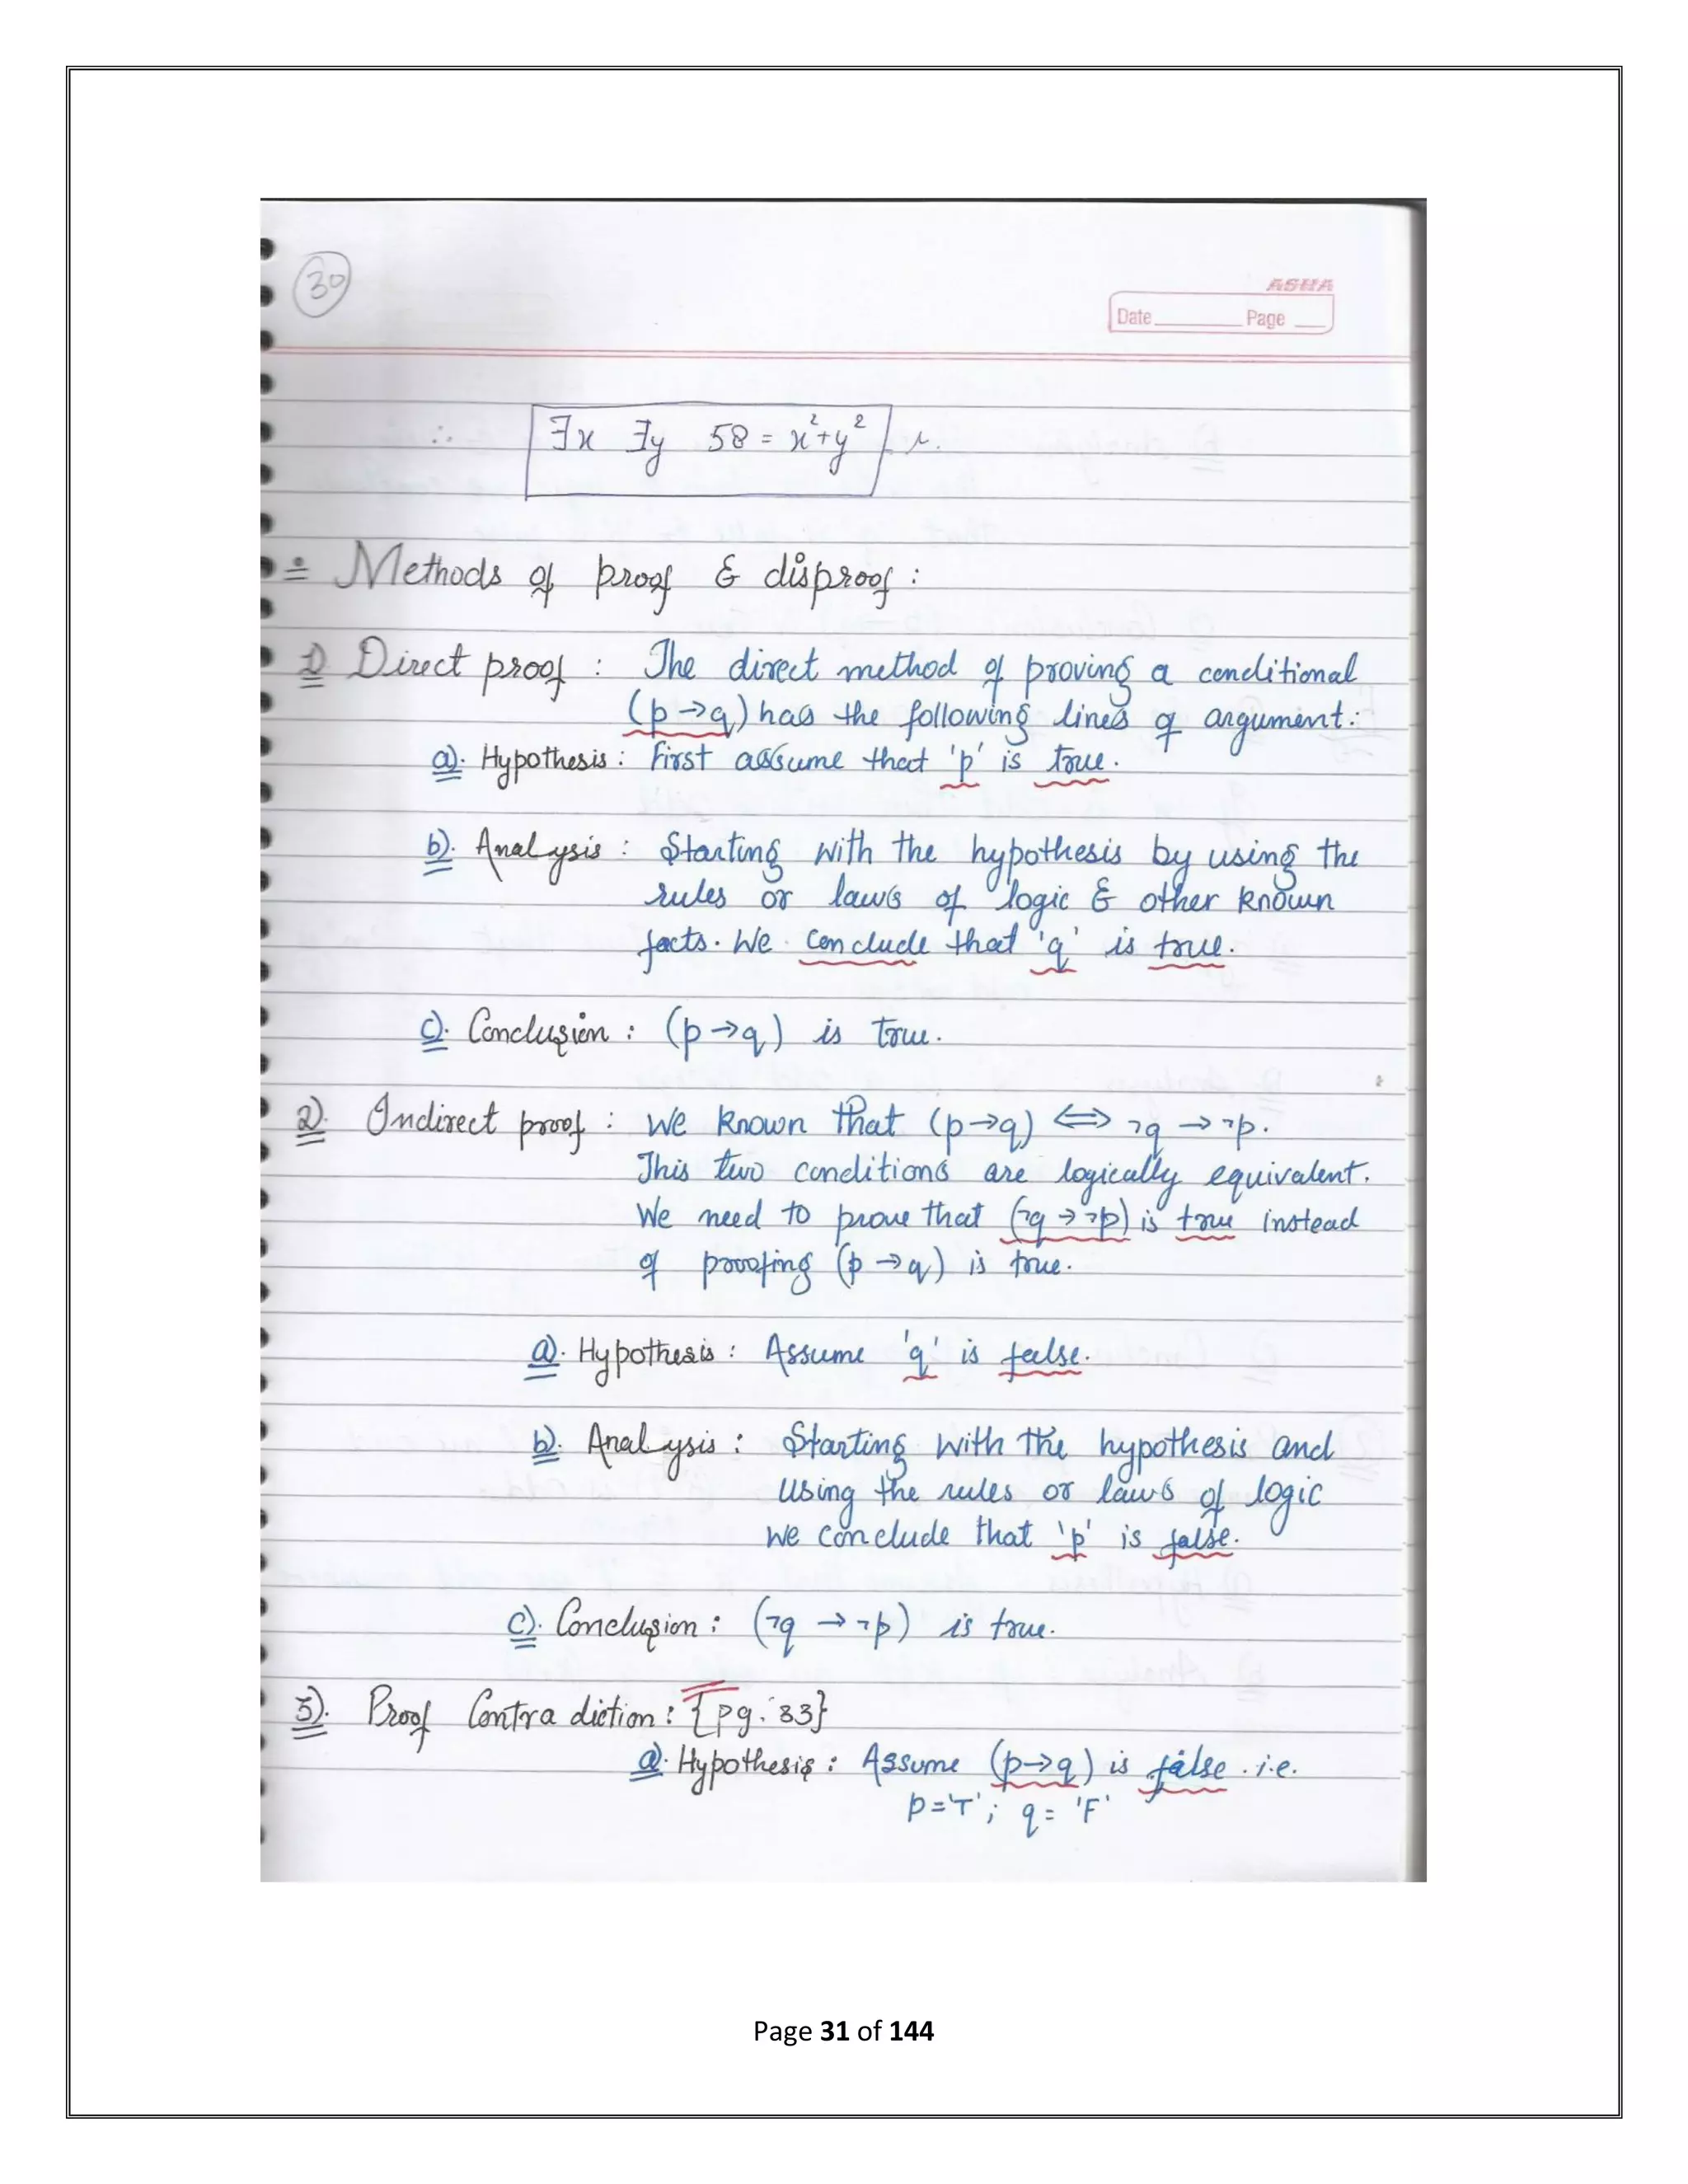 30
ASHA
Date Page
∴ ∃x ∃y 58 = x²+y²
= Methods of proof & disproof :
1) Direct proof : The direct method of proving a conditional
(p→q) has the following lines of argument:
a). Hypothesis : First assume that 'p' is true.
b). Analysis : Starting with the hypothesis by using the
rules or laws of logic & other known
facts. We conclude that 'q' is true.
c). Conclusion : (p→q) is true.
2). Indirect proof : We known that (p→q) ⟺ ¬q → ¬p.
This two conditions are logically equivalent.
We need to prove that (¬q → ¬p) is true instead
of proofing (p → q) is true.
a). Hypothesis : Assume 'q' is false.
b). Analysis : Starting with the hypothesis and
using the rules or laws of logic
we conclude that 'p' is false.
c). Conclusion : (¬q → ¬p) is true.
3). Proof Contradiction : {pg. 33}
a). Hypothesis : Assume (p→q) is false . i.e.
p='T'; q= 'F'
Page 31 of 144